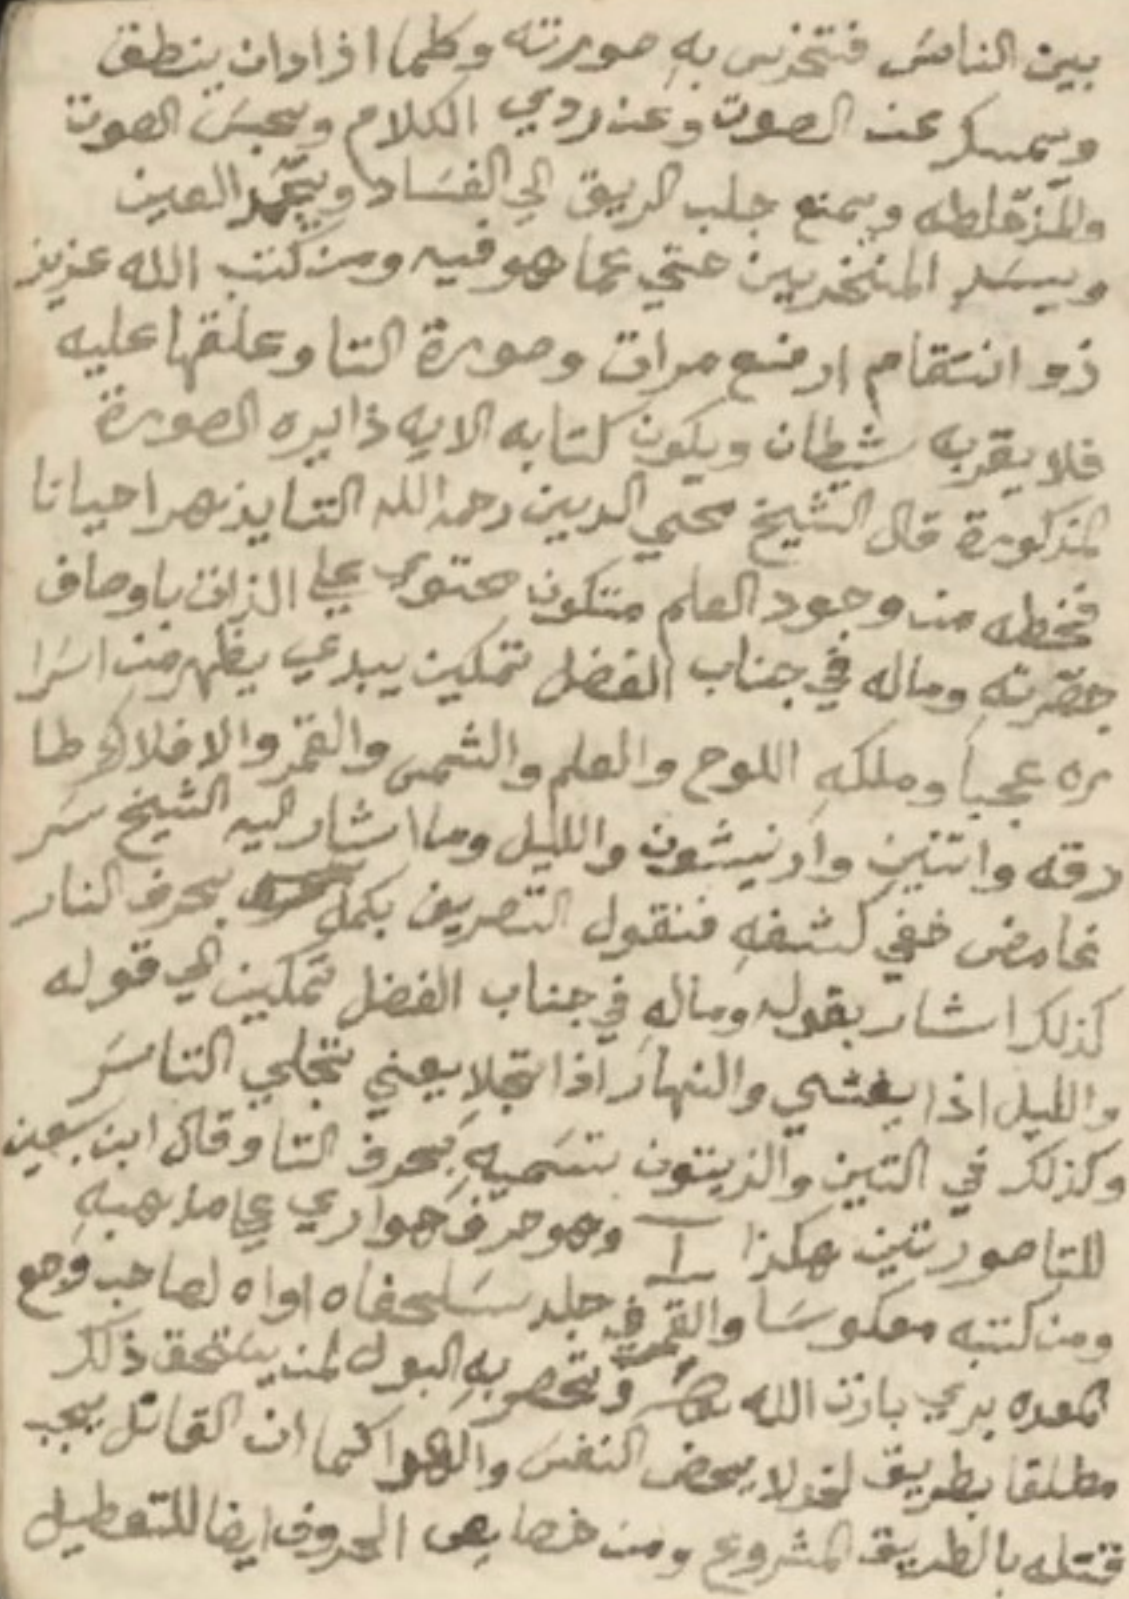 بين الناس فتخرس به صورته وكلما اذا اراد ان ينطق
ويمسكر عن الصوت وعن ردي الكلام ويحبس الصوت
ويمنع جلب الريق الي الفساد العين
ويسد المنخرين حتي عما هو فيه ومن كتب الله عزيز
ذو انتقام اربع مرات وصورة التا وعلقها عليه
فلا يقربه شيطان ويكون كتابه الايه دايره الصورة
المذكورة قال الشيخ محي الدين رحمه الله التا يذ احيانا
من وجود العلم متكون محتوي علي الذات باوصاف
حضرته وماله في جناب الفضل تمكين يبدي يظهر من اسرا
ره عجبا وملكه اللوح والعلم والشمس والقمر والافلاك طا
رقه واتنين وار نيشون والليل وما اشار اليه الشيخ سر
غامض خفي كشفه فنقول التصريف بكمل بحرف النار
كذلك اشار بقوله وماله في جناب الفضل تمكين الي قوله
والليل اذا يغشي والنهار اذا تجلا يعني تجلي التا سر
وكذلك في التين والزيتون بتسميه بحرف التا وقال ابن سبعين
للتا صورتين هكذا وهو حرف هواري علي ما
ومن كتبه معكوسا والقمر في جلد سلحفاه اواه لصاحب وجع
المعده بري باذن الله وتحصر به البول لمن يستحق ذلك
مطلقا بطريق لا بحض النفس والهوا كما ان القاتل يجب
قتله بالطريق المشروع ومن خصايص الحروف ايضا للتعطيل